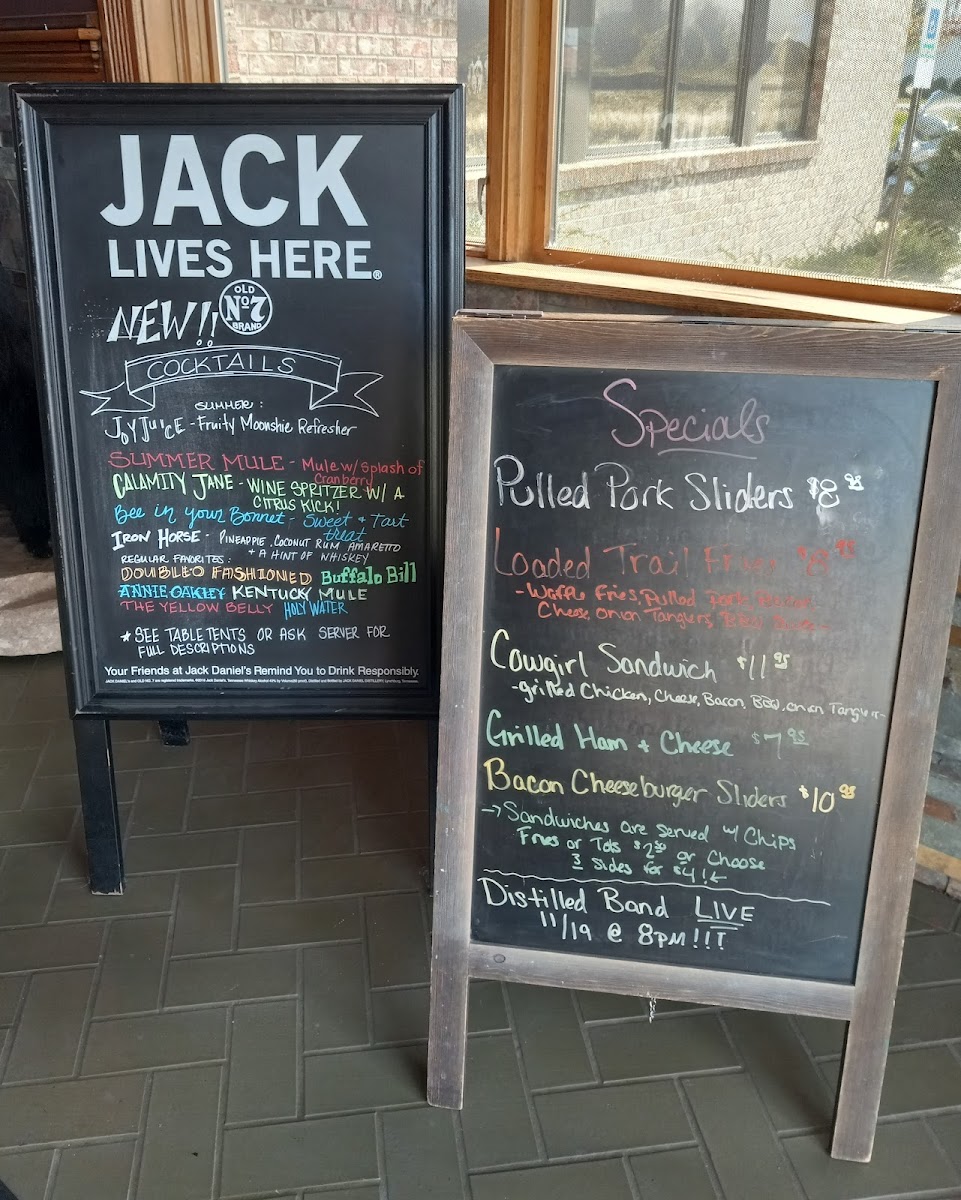 JACK
LIVES HERE®
NEW!!
OLD
Nº7
BRAND
COCKTAILS
SUMMER:
JOY JUICE - Fruity Moonshie Refresher
SUMMER MULE - Mule w/ Splash of
Cranberry
CALAMITY JANE - WINE SPRITZER W/ A
CITRUS KICK!
Bee in your Bonnet - Sweet & Tart
treat
IRON HORSE - PINEAPPLE, COCONUT RUM, AMARETTO
+ A HINT OF WHISKEY
REGULAR FAVORITES:
DOUBLE O FASHIONED Buffalo Bill
ANNIE OAKLEY KENTUCKY MULE
THE YELLOW BELLY HOLY WATER
* SEE TABLE TENTS OR ASK SERVER FOR
FULL DESCRIPTIONS
Your Friends at Jack Daniel's Remind You to Drink Responsibly.
Specials
Pulled Pork Sliders $8 95
Loaded Trail Fries $8 95
- Waffle Fries, Pulled Pork, Bacon,
Cheese, Onion Tanglers, BBQ Sauce -
Cowgirl Sandwich $11 95
- grilled Chicken, Cheese, Bacon, BBQ, onion Tanglers -
Grilled Ham + Cheese $7 95
Bacon Cheeseburger Sliders $10 95
→ Sandwiches are served w/ Chips
Fries or Tots $2 50 or Choose
3 Sides for $4! ←
Distilled Band LIVE
11/19 @ 8PM!!!